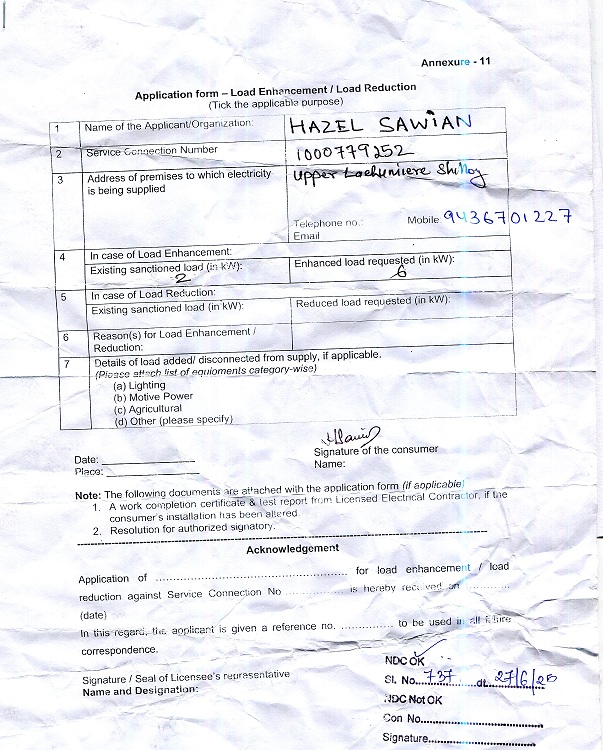 Annexure - 11
Application form – Load Enhancement / Load Reduction
(Tick the applicable purpose)
1 Name of the Applicant/Organization: HAZEL SAWIAN
2 Service Connection Number 1000779252
3 Address of premises to which electricity is being supplied Upper Lachumiere Shillong
Telephone no.: Mobile: 9436701227
Email
4 In case of Load Enhancement:
Existing sanctioned load (in kW): 2 Enhanced load requested (in kW): 6
5 In case of Load Reduction:
Existing sanctioned load (in kW): Reduced load requested (in kW):
6 Reason(s) for Load Enhancement / Reduction:
7 Details of load added/ disconnected from supply, if applicable.
(Please attach list of equipments category-wise)
(a) Lighting
(b) Motive Power
(c) Agricultural
(d) Other (please specify)
Date: ________________
Place: ________________
Signature of the consumer
Name:
Note: The following documents are attached with the application form (if applicable)
1. A work completion certificate & test report from Licensed Electrical Contractor, if the
consumer's installation has been altered.
2. Resolution for authorized signatory.
Acknowledgement
Application of ........................ for load enhancement / load
reduction against Service Connection No ............... is hereby received on ............
(date)
In this regard, the applicant is given a reference no. .............. to be used in all future
correspondence.
Signature / Seal of Licensee's representative
Name and Designation:
NDC OK
Sl. No. 737 dt. 27/6/20
NDC Not OK
Con No.
Signature